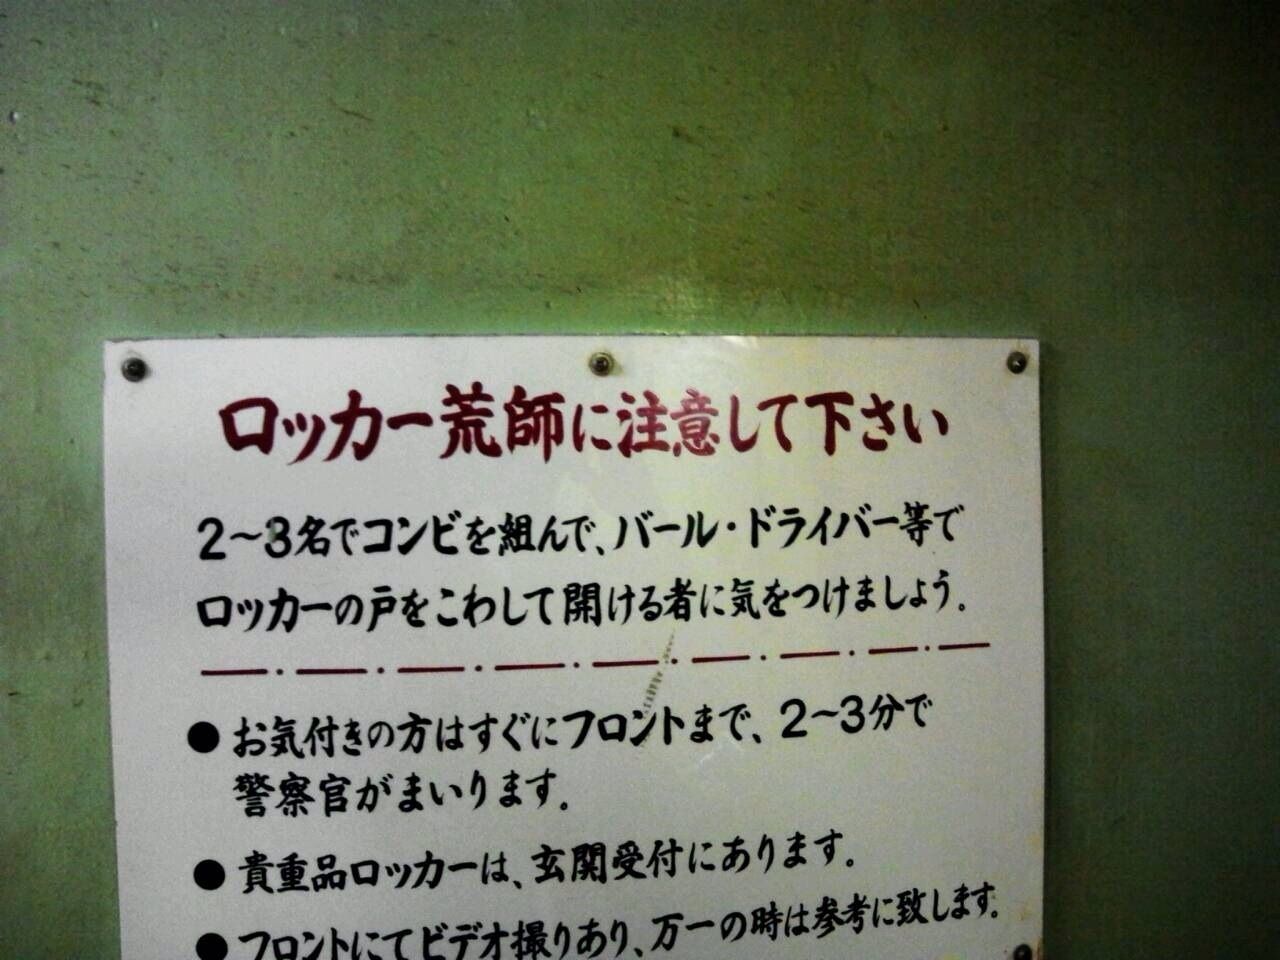 ロッカー荒師に注意して下さい
2〜3名でコンビを組んで、バール・ドライバー等で
ロッカーの戸をこわして開ける者に気をつけましょう。
●お気付きの方はすぐにフロントまで、2〜3分で
警察官がまいります。
●貴重品ロッカーは、玄関受付にあります。
●フロントにてビデオ撮りあり、万一の時は参考に致します。